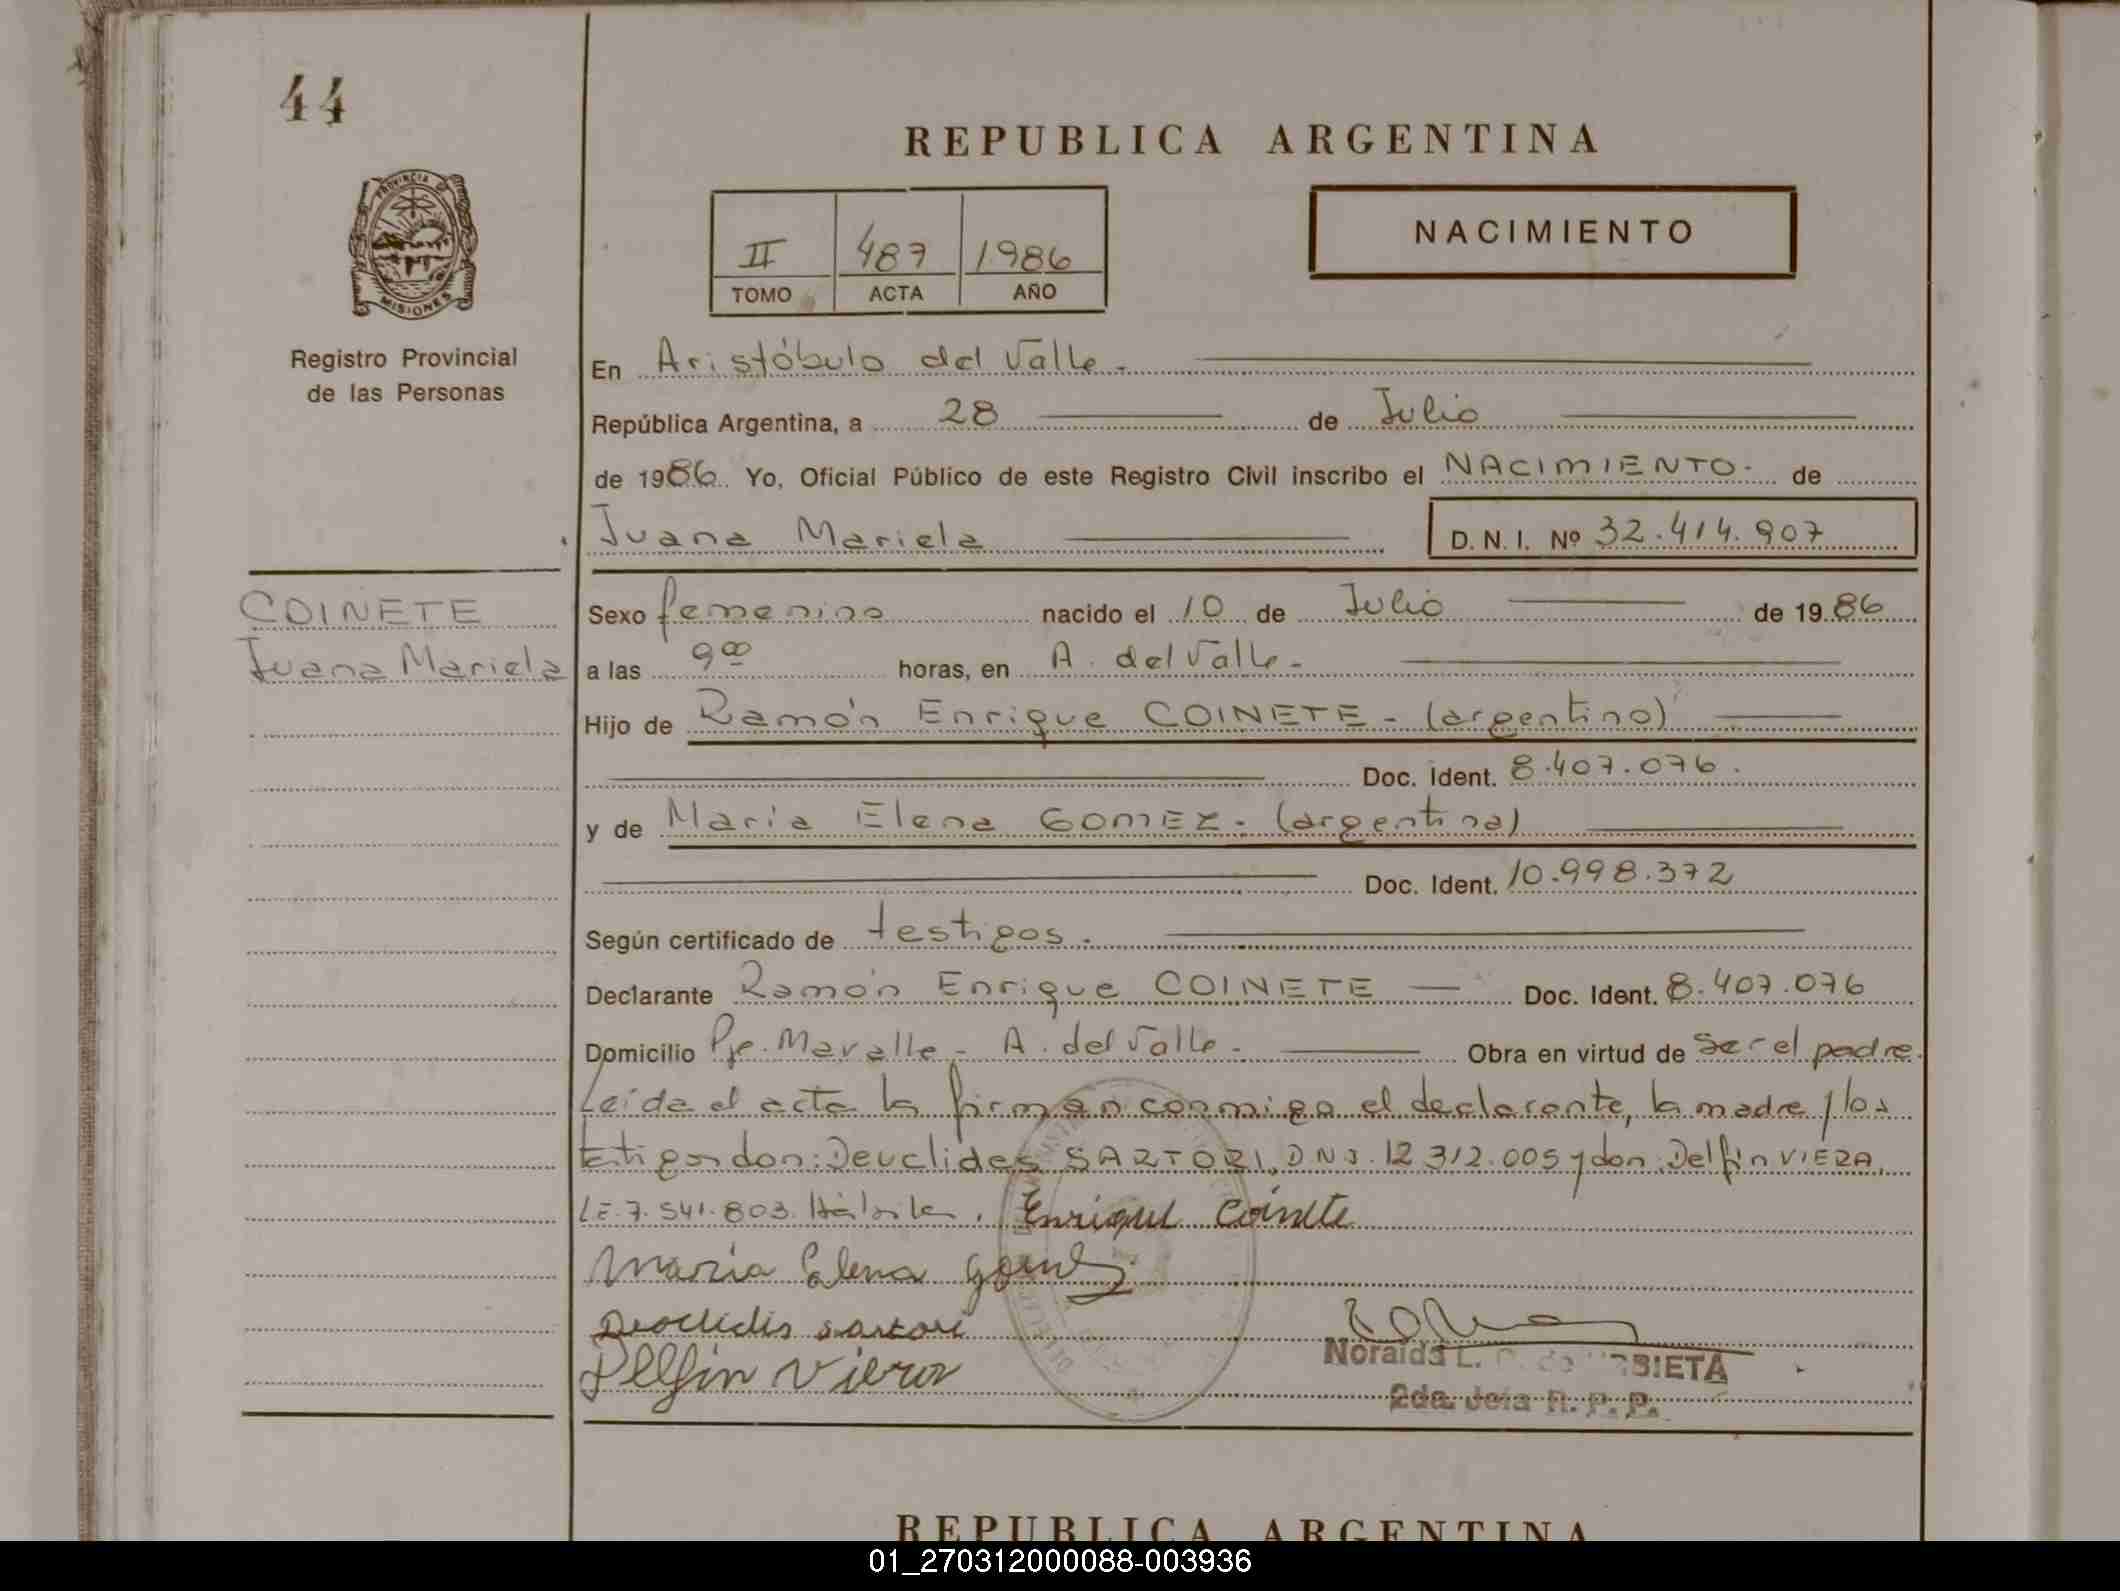 44
PROVINCIA DE
MISIONES
Registro Provincial
de las Personas
REPUBLICA ARGENTINA
II 487 1986
TOMO ACTA AÑO
NACIMIENTO
En Aristóbulo del Valle.
República Argentina, a 28 de Julio
de 1986. Yo, Oficial Público de este Registro Civil inscribo el NACIMIENTO. de
Juana Mariela D. N. I. Nº 32.414.907
COINETE
Juana Mariela
Sexo femenino nacido el 10 de Julio de 1986
a las 9 00 horas, en A. del Valle.
Hijo de Ramón Enrique COINETE - (argentino)
Doc. Ident. 8.407.076.
y de María Elena GOMEZ. (argentina)
Doc. Ident. 10.998.372
Según certificado de testigos.
Declarante Ramón Enrique COINETE Doc. Ident. 8.407.076
Domicilio Pje. Mavalle - A. del Valle. Obra en virtud de ser el padre.
Leída el acta la firman conmigo el declarante, la madre y los
testigos don: Deuclides SARTORI, DNI. 12.312.005 y don: Delfín VIERA,
LE. 7.541.803. Enrique Coinete
María Elena Gomez
Deoclidis Sartori
Delfin Viera
Noraida L. de
2da. Jefa R. P. P.
REPUBLICA ARGENTINA
01_270312000088-003936